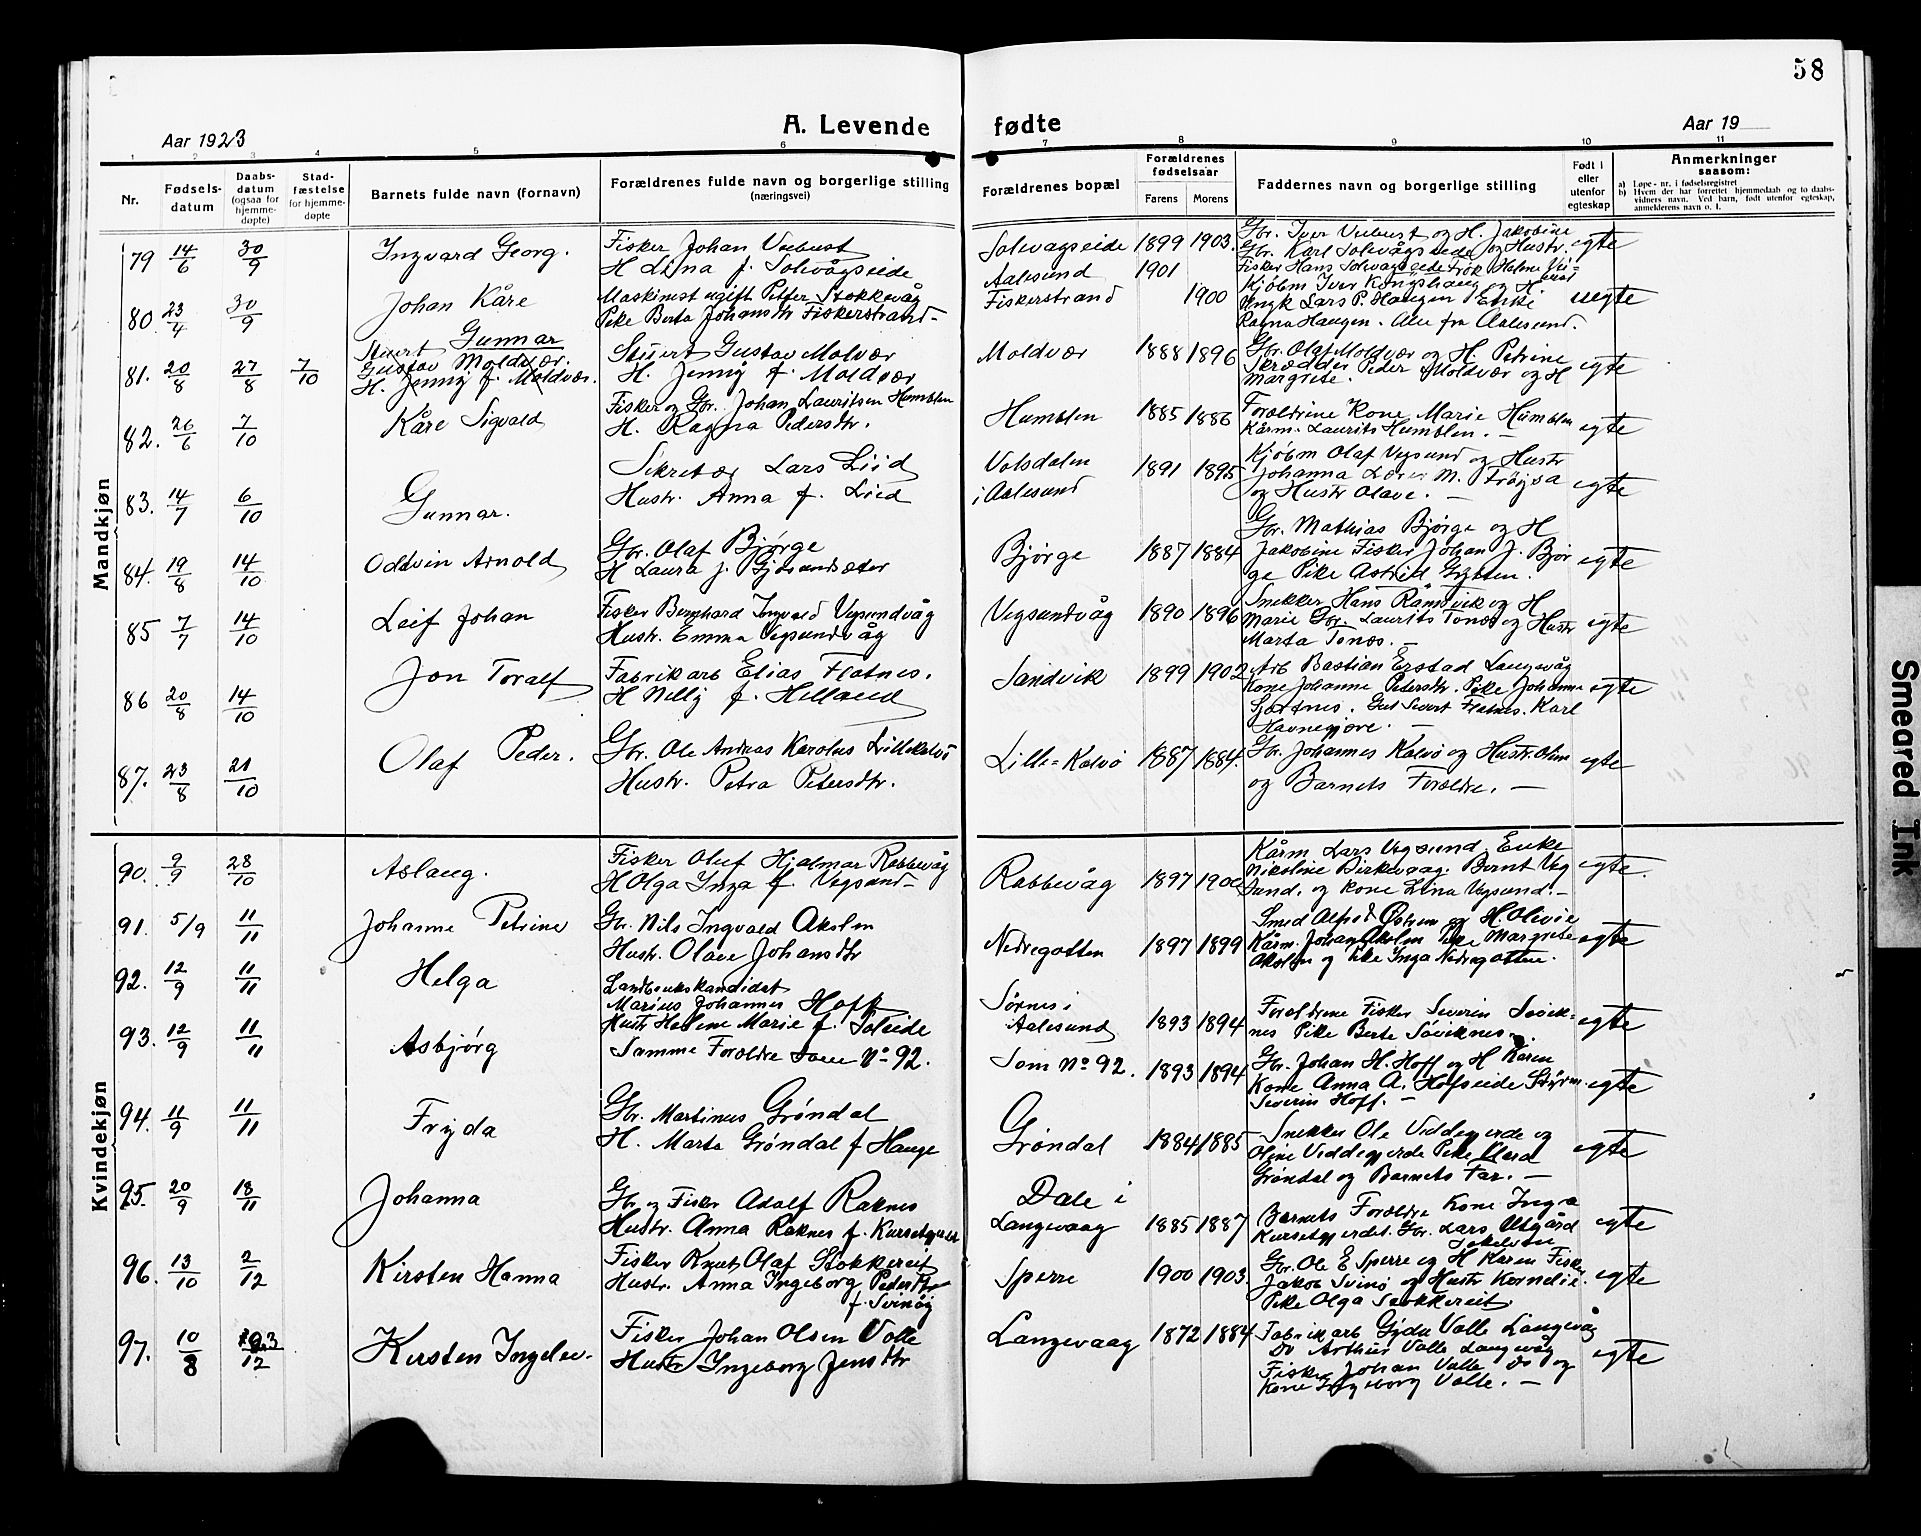 58
Aar 1923
A. Levende
fødte
Aar 19
1 2 3 4 5 6 7 8 9 10 11
Nr.
Fødsels-
datum
Daabs-
datum
(ogsaa for
hjemme-
døpte)
Stad-
fæstelse
for hjemme-
døpte
Barnets fulde navn (fornavn)
Forældrenes fulde navn og borgerlige stilling
(næringsvei)
Forældrenes bopæl
Forældrenes
fødselsaar
Farens Morens
Faddernes navn og borgerlige stilling
Født i
eller
utenfor
egteskap
Anmerkninger
saasom:
a) Løpe-nr. i fødselsregistret
b) Hvem der har forrettet hjemmedaab og to daabs-
vidners navn. Ved barn, født utenfor egteskap,
anmelderens navn o. l.
Mandkjøn
79 14/6 30/9 Ingvard Georg.
Fisker Johan Veibust
H Lina f. Solevågseide
Solevagseide 1899 1903.
Gbr. Iver Veibust og H. Jakobine
Gbr. Karl Solevågseide og Hustr
Fisker Hans Solevagseide Frøk Halene Vei-
bust
egte
80. 23/4 30/9 Johan Kåre
Maskinist ugift Petter Stokkevåg
Pike Berta Johansdtr Fiskerstrand-
Aalesund 1901
Fiskerstrand 1900
Kjøbm Iver Kongshaug og H
Yngk Lars P. Haugen Enke
Ragna Haugen. Alle fra Aalesund.
uegte
81. 20/8 27/8 7/10 Gunnar
Stuert
Gustav Moldvær.
H. Jenny f. Moldvær.
Stuert Gustav Molvær
H. Jenny f. Moldvær
Moldvær 1888 1896
Gbr. Olaf Moldvær og H. Petrine
Skrædder Peder Moldvær og H
Margrete.
egte
82. 26/6 7/10 Kåre Sigvald
Fisker og Gbr. Johan Lauritsen Humblen
H. Ragna Pedersdtr.
Humblen 1885 1886
Forældrene Kone Marie Humblen
Kårm. Laurits Humblen. -
egte
83. 14/7 6/10 Gunnar.
Sekretær Lars Liid
Hustr. Anna f. Lied
Volsdalen
i Aalesund 1891 1895
Kjøbm Olaf Vegsund og Hustr
Johanna Lærer M. Frøysa
og Hustr Olave. -
egte
84. 19/8 14/10 Oddvin Arnold
Gbr. Olaf Bjørge
H Laura f. Gjøsundsæter
Bjørge 1887 1884
Gbr. Mathias Bjørge og H
Jakobine Fisker Johan J. Bjør
ge Pike Astrid
egte
85 7/7 14/10 Leif Johan
Fisker Bernhard Ingvald Vegsundvåg
Hustr. Emma Vegsundvåg
Vegsundvåg 1890 1896
Snekker Hans Ramsvik og H
Marie Gbr. Laurits Tonæs og Hustr
Marta Tonæs. -
egte
86 20/8 14/10 Jon Toralf
Fabrikarb Elias Flatnes.
H Nelly f. Helland
Sandvik 1899 1902
Arb Bastian Erstad Langevåg
Kone Johanne Petersdtr. Pike Johanne
Gjortnes. Gut Sivert Flatnes. Karl
Havnegjøre. -
egte
87. 23/8 21/10 Olaf Peder.
Gbr. Ole Andreas Karolus Lillekalvø
Hustr. Petra Petersdtr.
Lille-Kalvø 1887 1884.
Gbr. Johannes Kalvø og Hustr. Oline
og Barnets Forældre. -
egte
Kvindekjøn
90. 9/9 28/10 Aslaug.
Fisker Oluf Hjalmar Rabbevåg
H Olga Inga f. Vegsund-
Rabbevåg 1897 1900
Kårm Lars Vegsund, Enke
Nikoline Birkevaag. Bernt Veg
sund. og Kone Lina Vegsund. -
egte.
91. 5/9 11/11 Johanne Petrine
Gbr. Nils Ingvald Akslen
Hustr. Olave Johansdtr
Nedregotten 1897 1899
Smed Alfred Østrem og H. Olivie
Kårm. Johan Akslen Pike Margrete
Akslen og Pike Inga Nedregotten.
egte
92. 12/9 11/11 Helga
Landbrukskandidat
Marius Johannes Hoff
Hustr Helene Marie f. Solseide
Sørnes i
Aalesund 1893 1894
Forældrene Fisker Severin Søvik-
nes Pike Berte Søviknes.
egte
93. 12/9 11/11 Asbjørg
Samme Forældre som No 92.
Som No 92. 1893 1894
Gbr. Johan H. Hoff og H Karen
Kone Anna A. Hofseide Styrm.
Severin Hoff. -
egte
94. 11/9 11/11 Fryda
Gbr. Martinus Grøndal
H. Marta Grøndal f Hauge
Grøndal 1884 1885
Snekker Ole Viddegjerde og
Oline Viddegjerde Pike Klara
Grøndal og Barnets Far. -
egte
95. 20/9 18/11 Johanna
Gbr og Fisker Adolf Raknes
Hustr. Anna Raknes f. Kursetgjerdet
Dale i
Langevaag 1885 1887
Barnets Forældre Kone Inga
Kursetgjerdet. Gbr. Lars Utgård
egte
96. 13/10 2/12 Kirsten Hanna
Fisker Knut Olaf Stokkereit
Hustr. Anna Ingeborg Pedersdtr
f. Svinøy
Sperre 1900 1903.
Gbr. Ole E Sperre og H Karen Fisker
Jakob Svinø og Hustr Kornelie.
Pike Olga Stokkereit
egte
97. 10/8 23/12 Kirsten Ingelev.
Fisker Johan Olsen Valle
Hustr Ingeborg Jensdtr
Langevaag 1872 1884
Fabrikarb Gyda Valle Langevåg
Do Arthur Valle Langevåg
Fisker Johan Valle Do og
Kone Ingeborg Valle. -
egte
Smeared Ink